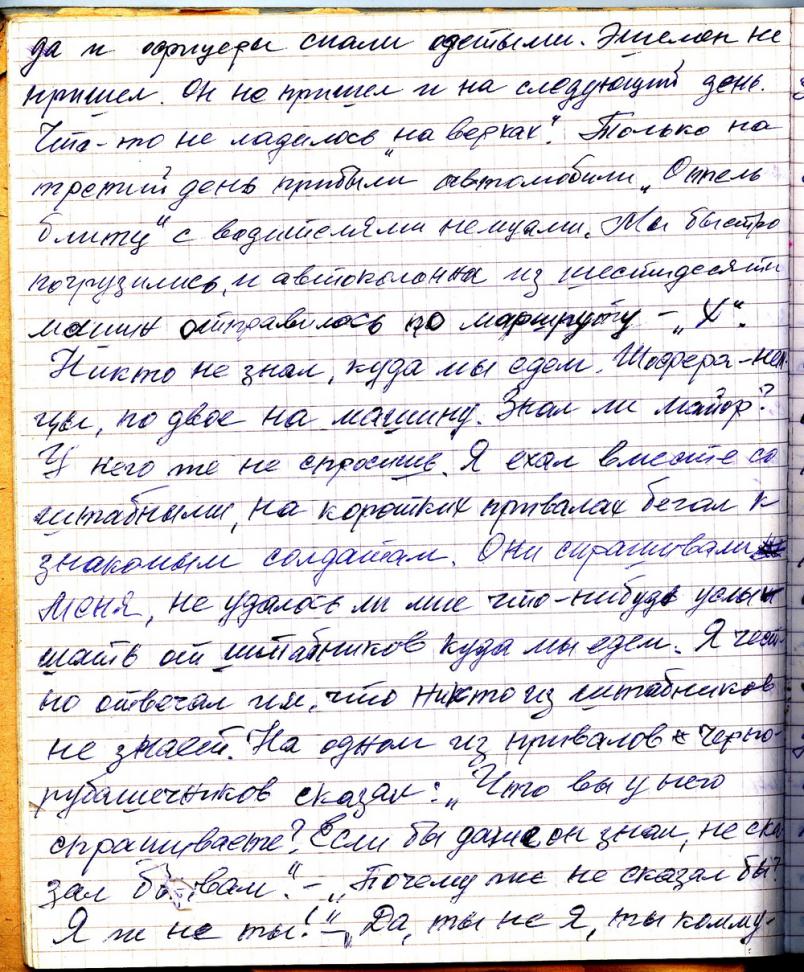 да и офицеры спали одетыми. Эшелон не
пришел. Он не пришел и на следующий день.
Что-то не ладилось „на верхах“. Только на
третий день прибыли автомобили „Оппель
блитц“ с водителями немцами. Мы быстро
погрузились, и автоколонна из шестидесяти
машин отправилась по маршруту – „Х“.
Никто не знал, куда мы едем. Шофера – нем-
цы, по двое на машину. Знал ли майор?
У него же не спросишь. Я ехал вместе со
штабными, на коротких привалах бегал к
знакомым солдатам. Они спрашивали
меня, не удалось ли мне что-нибудь услы-
шать от штабников куда мы едем. Я чест-
но отвечал им, что никто из штабников
не знает. На одном из привалов Черно-
рубашечников сказал: „Что вы у него
спрашиваете? Если бы даже он знал, не ска-
зал бы вам.“ – „Почему же не сказал бы?
Я ж не ты!“ – „Да, ты не я, ты комму-